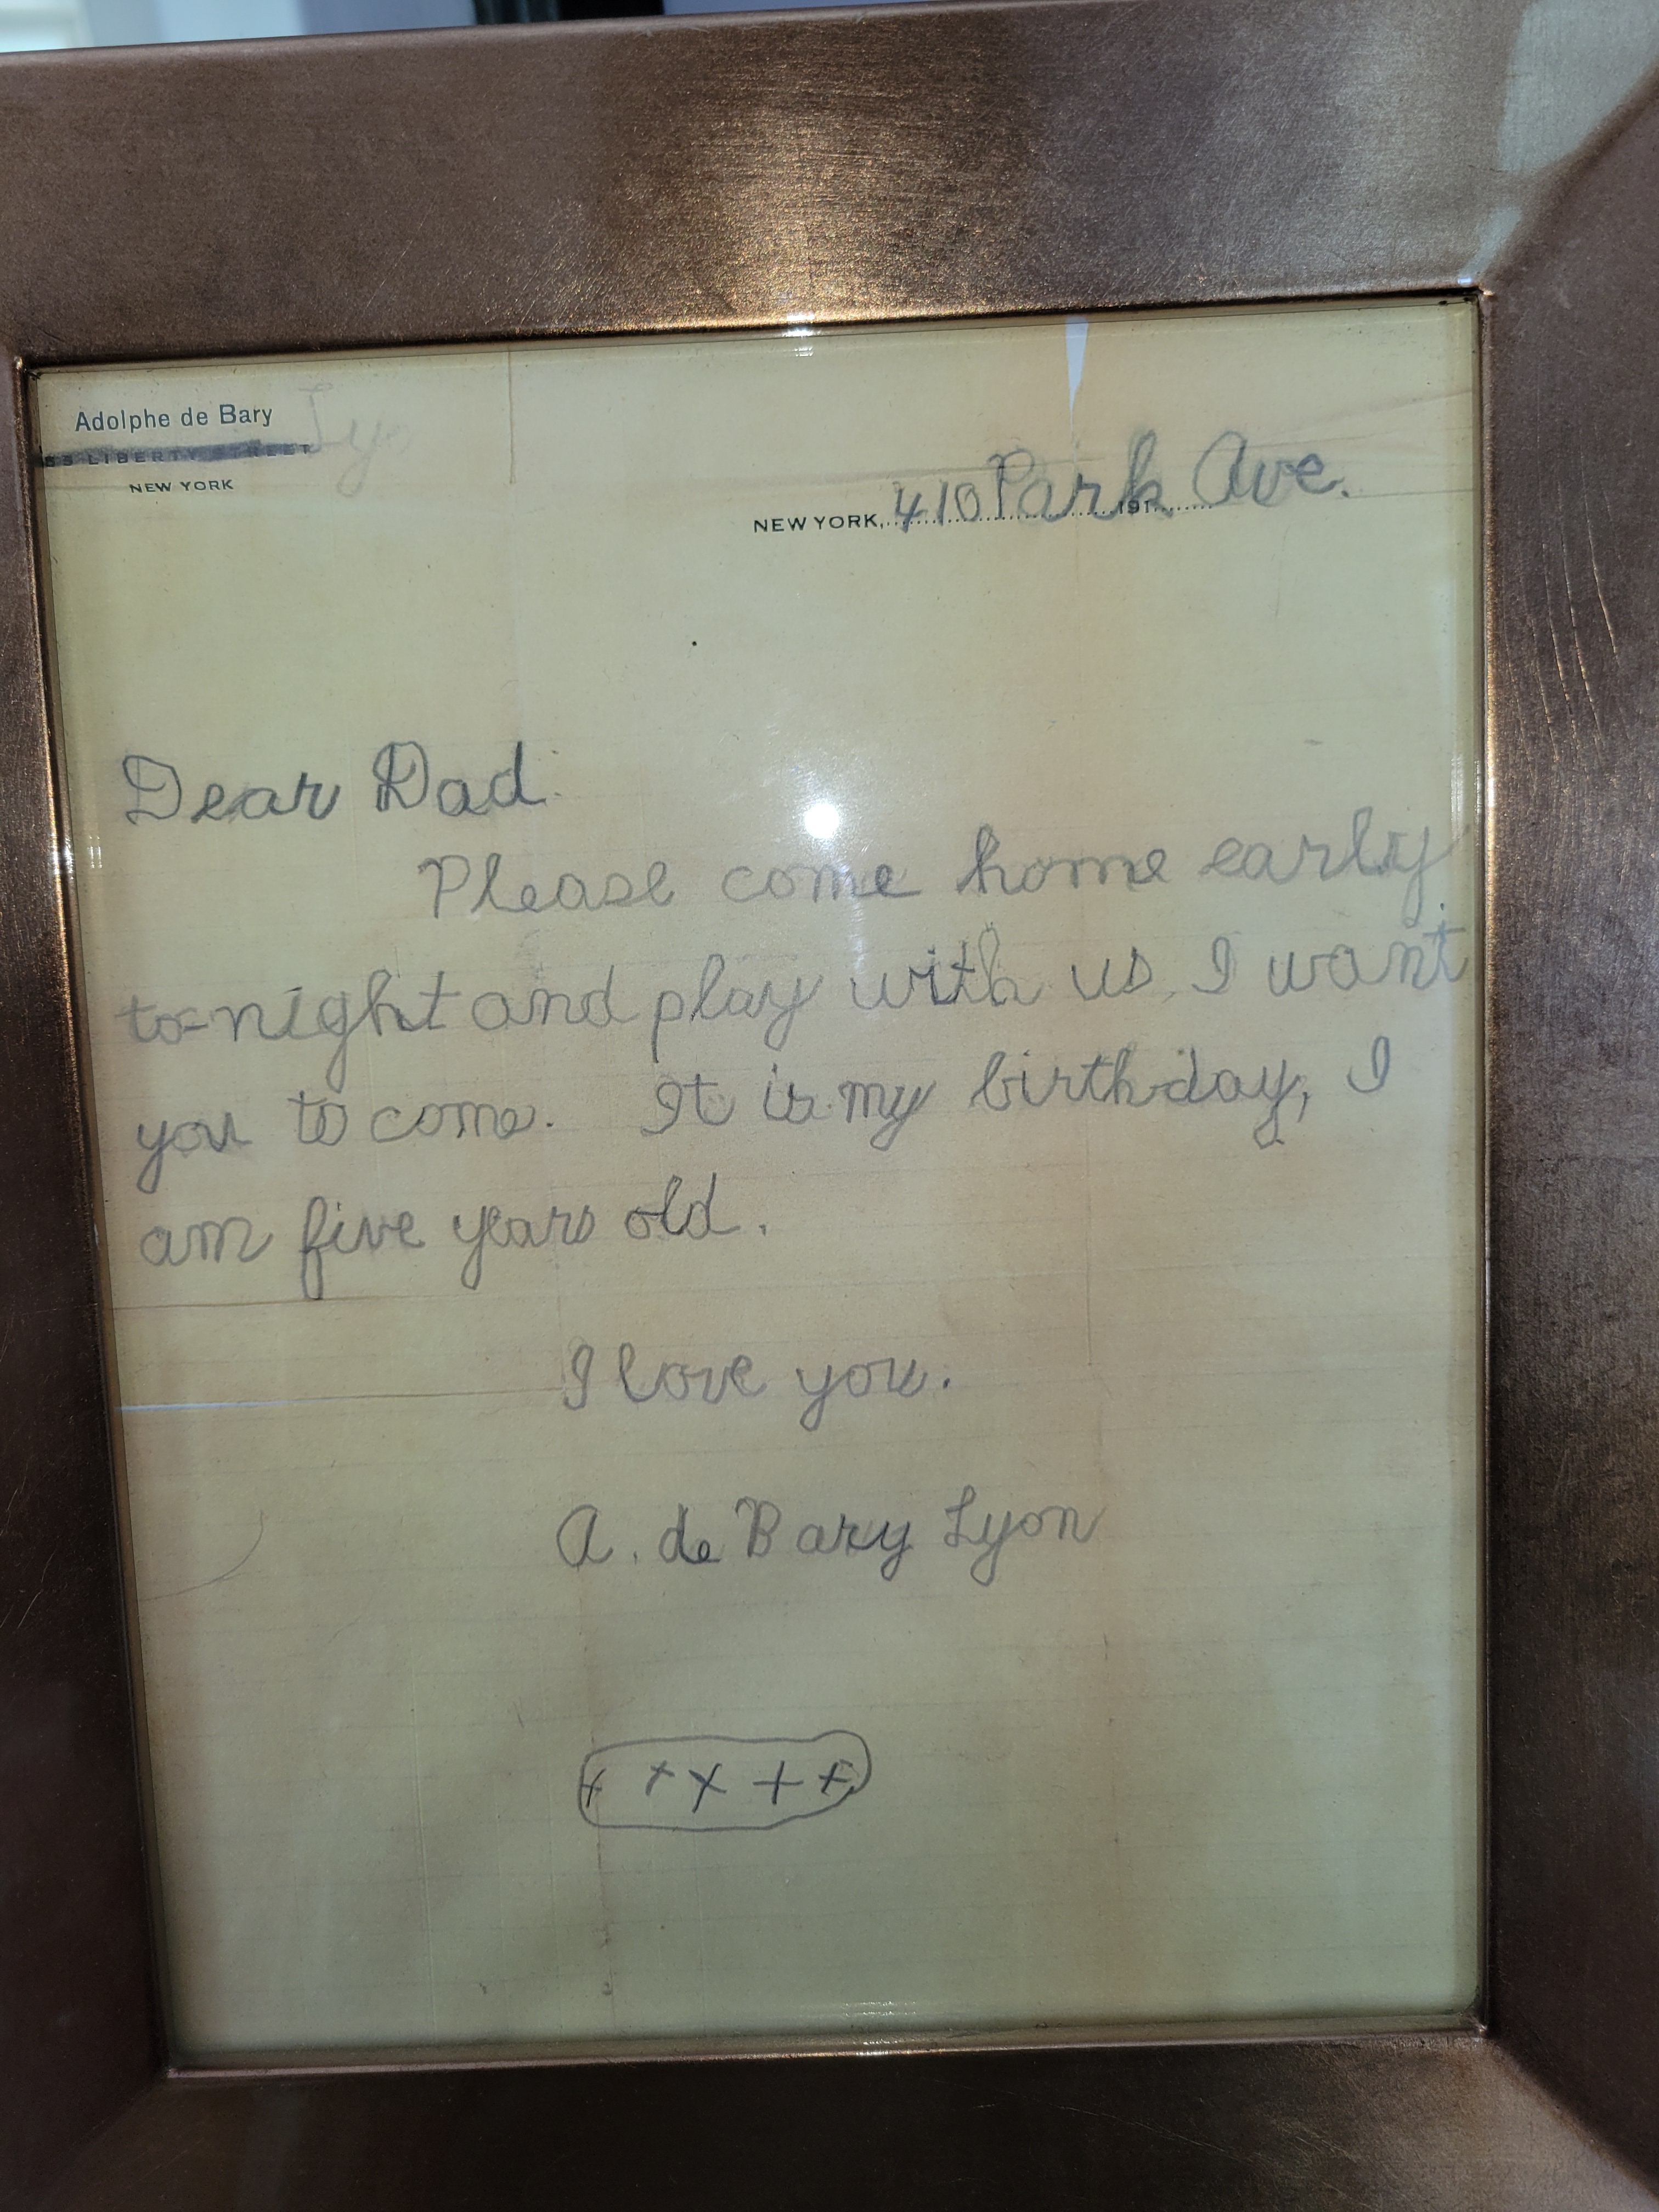 Adolphe de Bary Ly
LIBERTY STREET
NEW YORK
NEW YORK, 410 Park Ave. 191
Dear Dad.
Please come home early
to-night and play with us. I want
you to come. It is my birthday, I
am five years old.
I love you.
A. de Bary Lyon
x x x x x